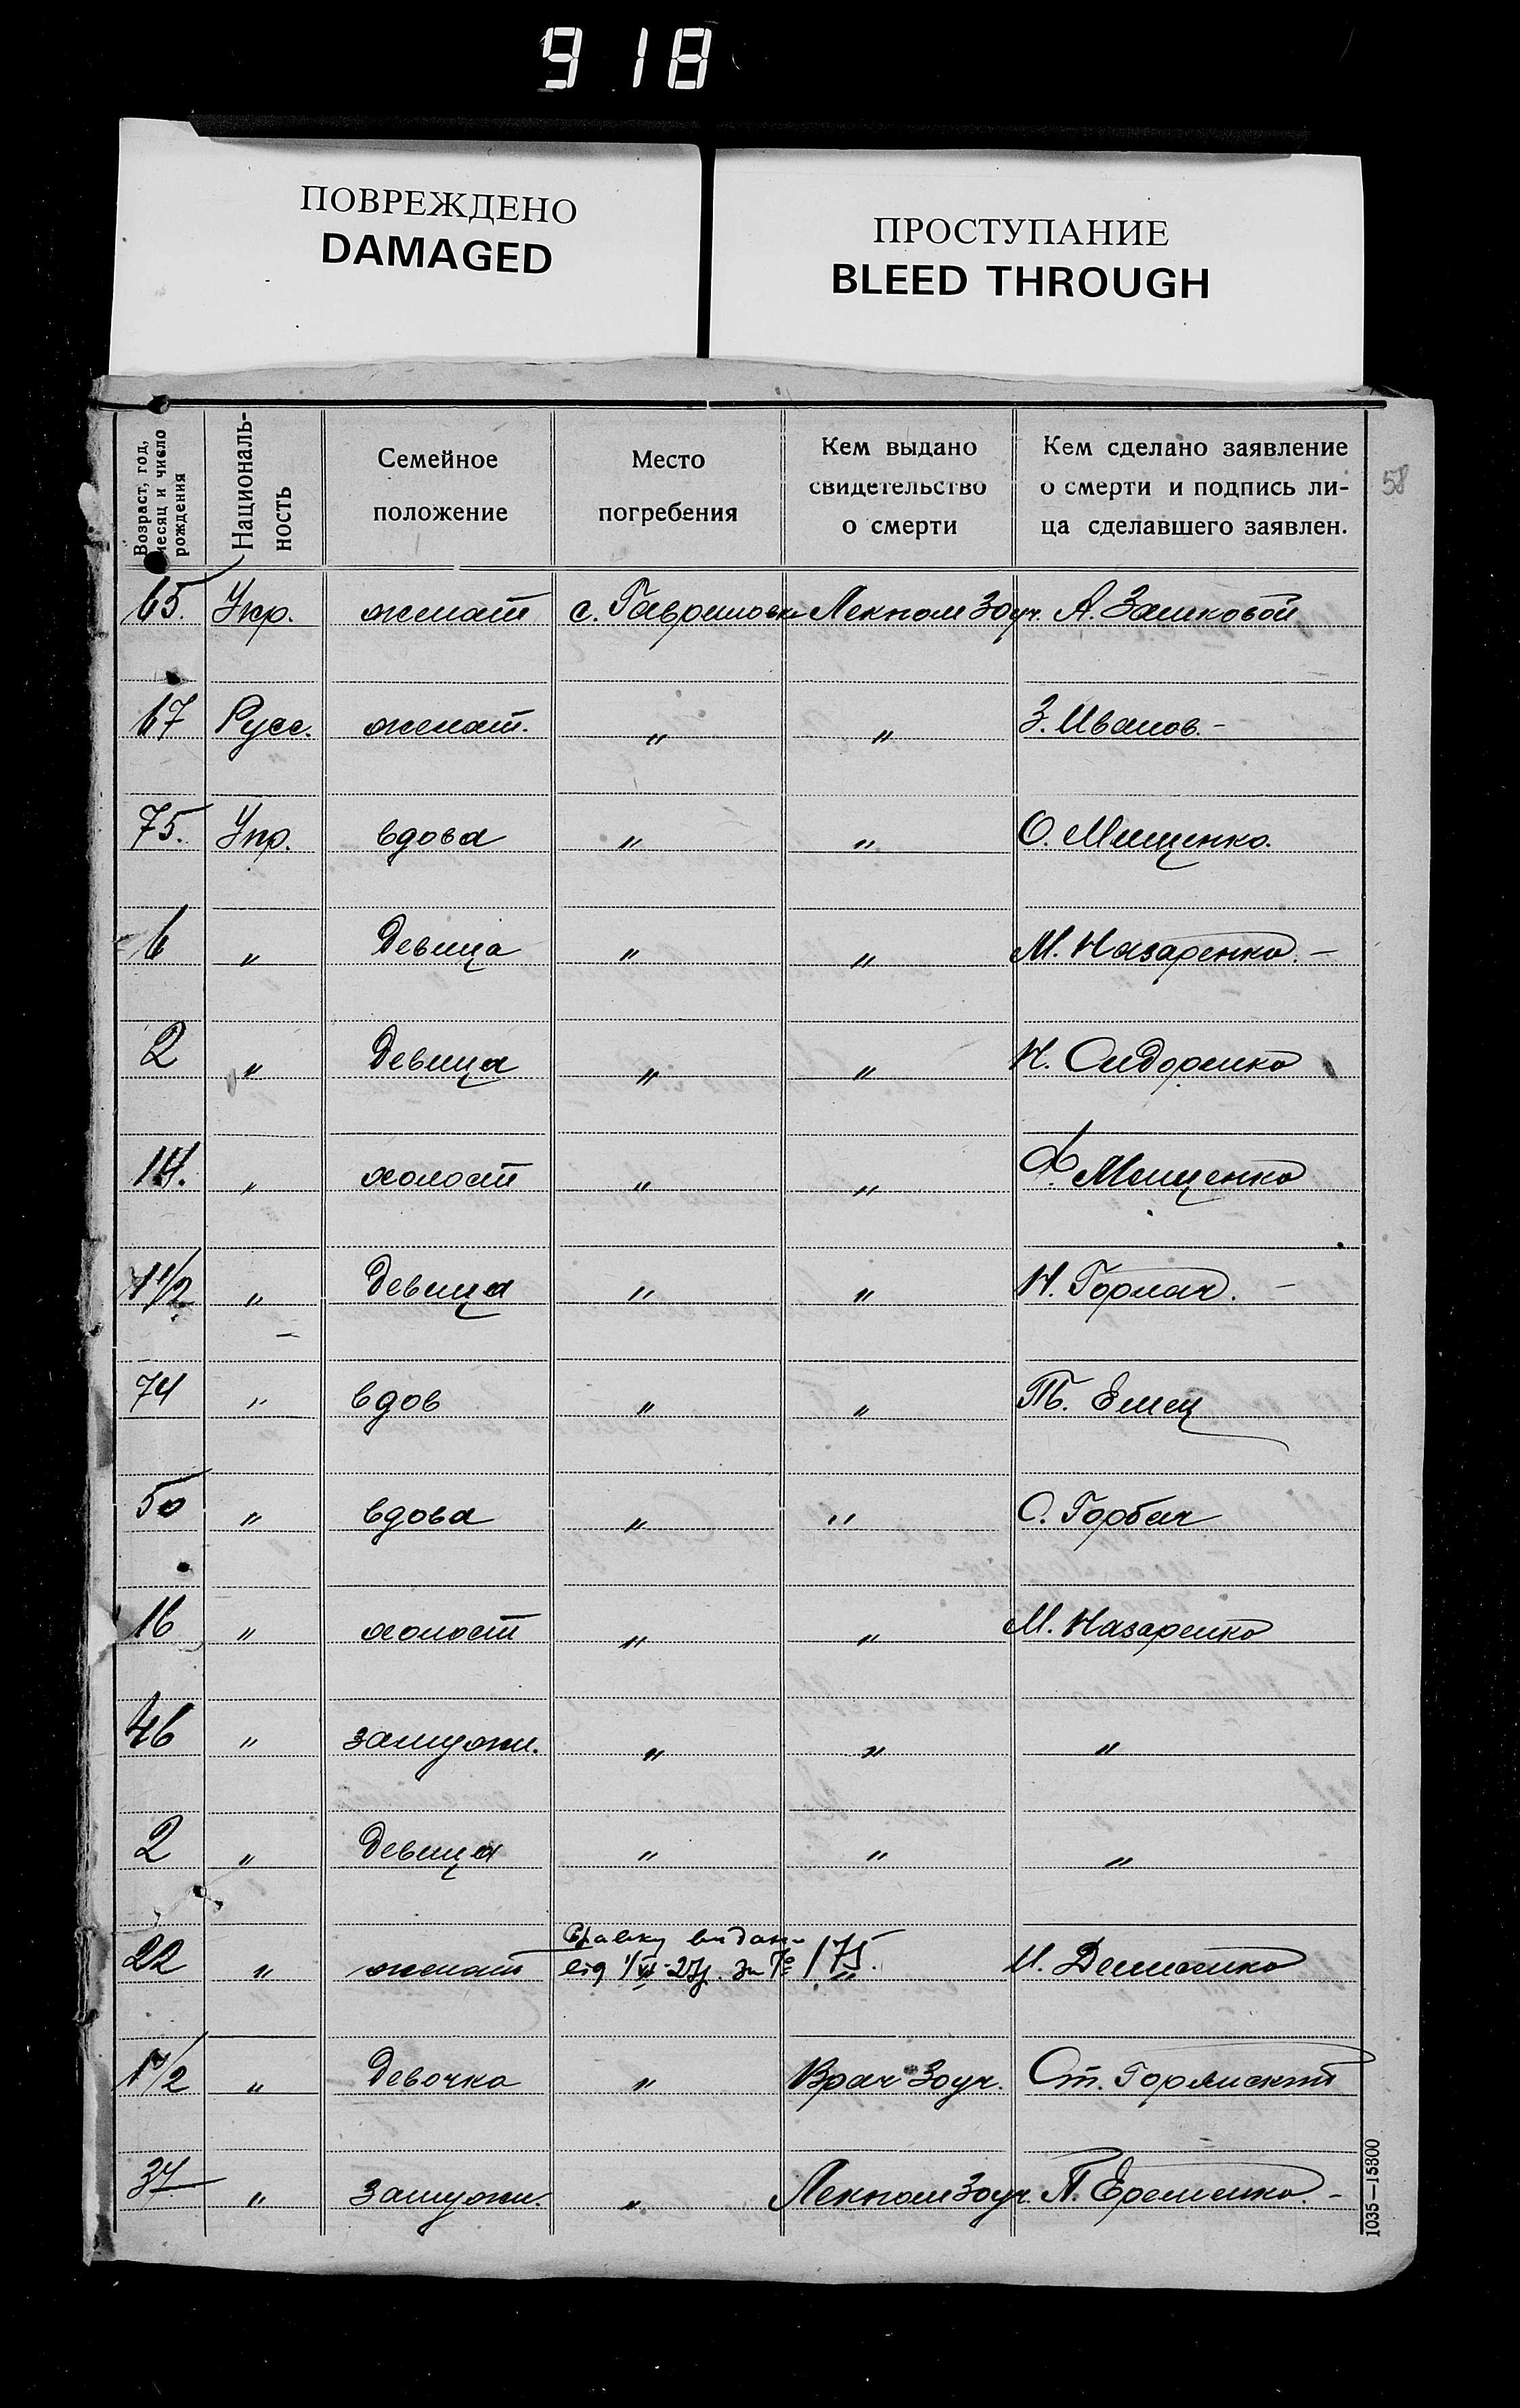 918
ПОВРЕЖДЕНО
DAMAGED
ПРОСТУПАНИЕ
BLEED THROUGH
58
Возраст, год, месяц и число рождения
Националь-
ность
Семейное
положение
Место
погребения
Кем выдано
свидетельство
о смерти
Кем сделано заявление
о смерти и подпись ли-
ца сделавшего заявлен.
65. Укр. женат с. Гавришовк Лекпом Зоуч. А.
67 Русс. женат. " " З. Иванов. -
75. Укр. вдова " " О. Мищенко.
6 " Девица " " М. Назаренко. -
2 " Девица " " Н. Сидоренко
14. " холост " " Ф. Мищенко
1 1/2 " Девица " " Н. Горлач. -
74 " вдов " " Емец
50 " вдова " " С. Горбач
16 " холост " " М. Назаренко
46 " замужн. " " "
2 " Девица " " "
Справку видан
22 " женат від 1/VI-27р. за № 175. " И. Демченко
1 1/2 " Девочка " Врач Зоуч. Ст.
34 " замужн. " Лекпом Зоуч. П. Еременко. -
1035—15300